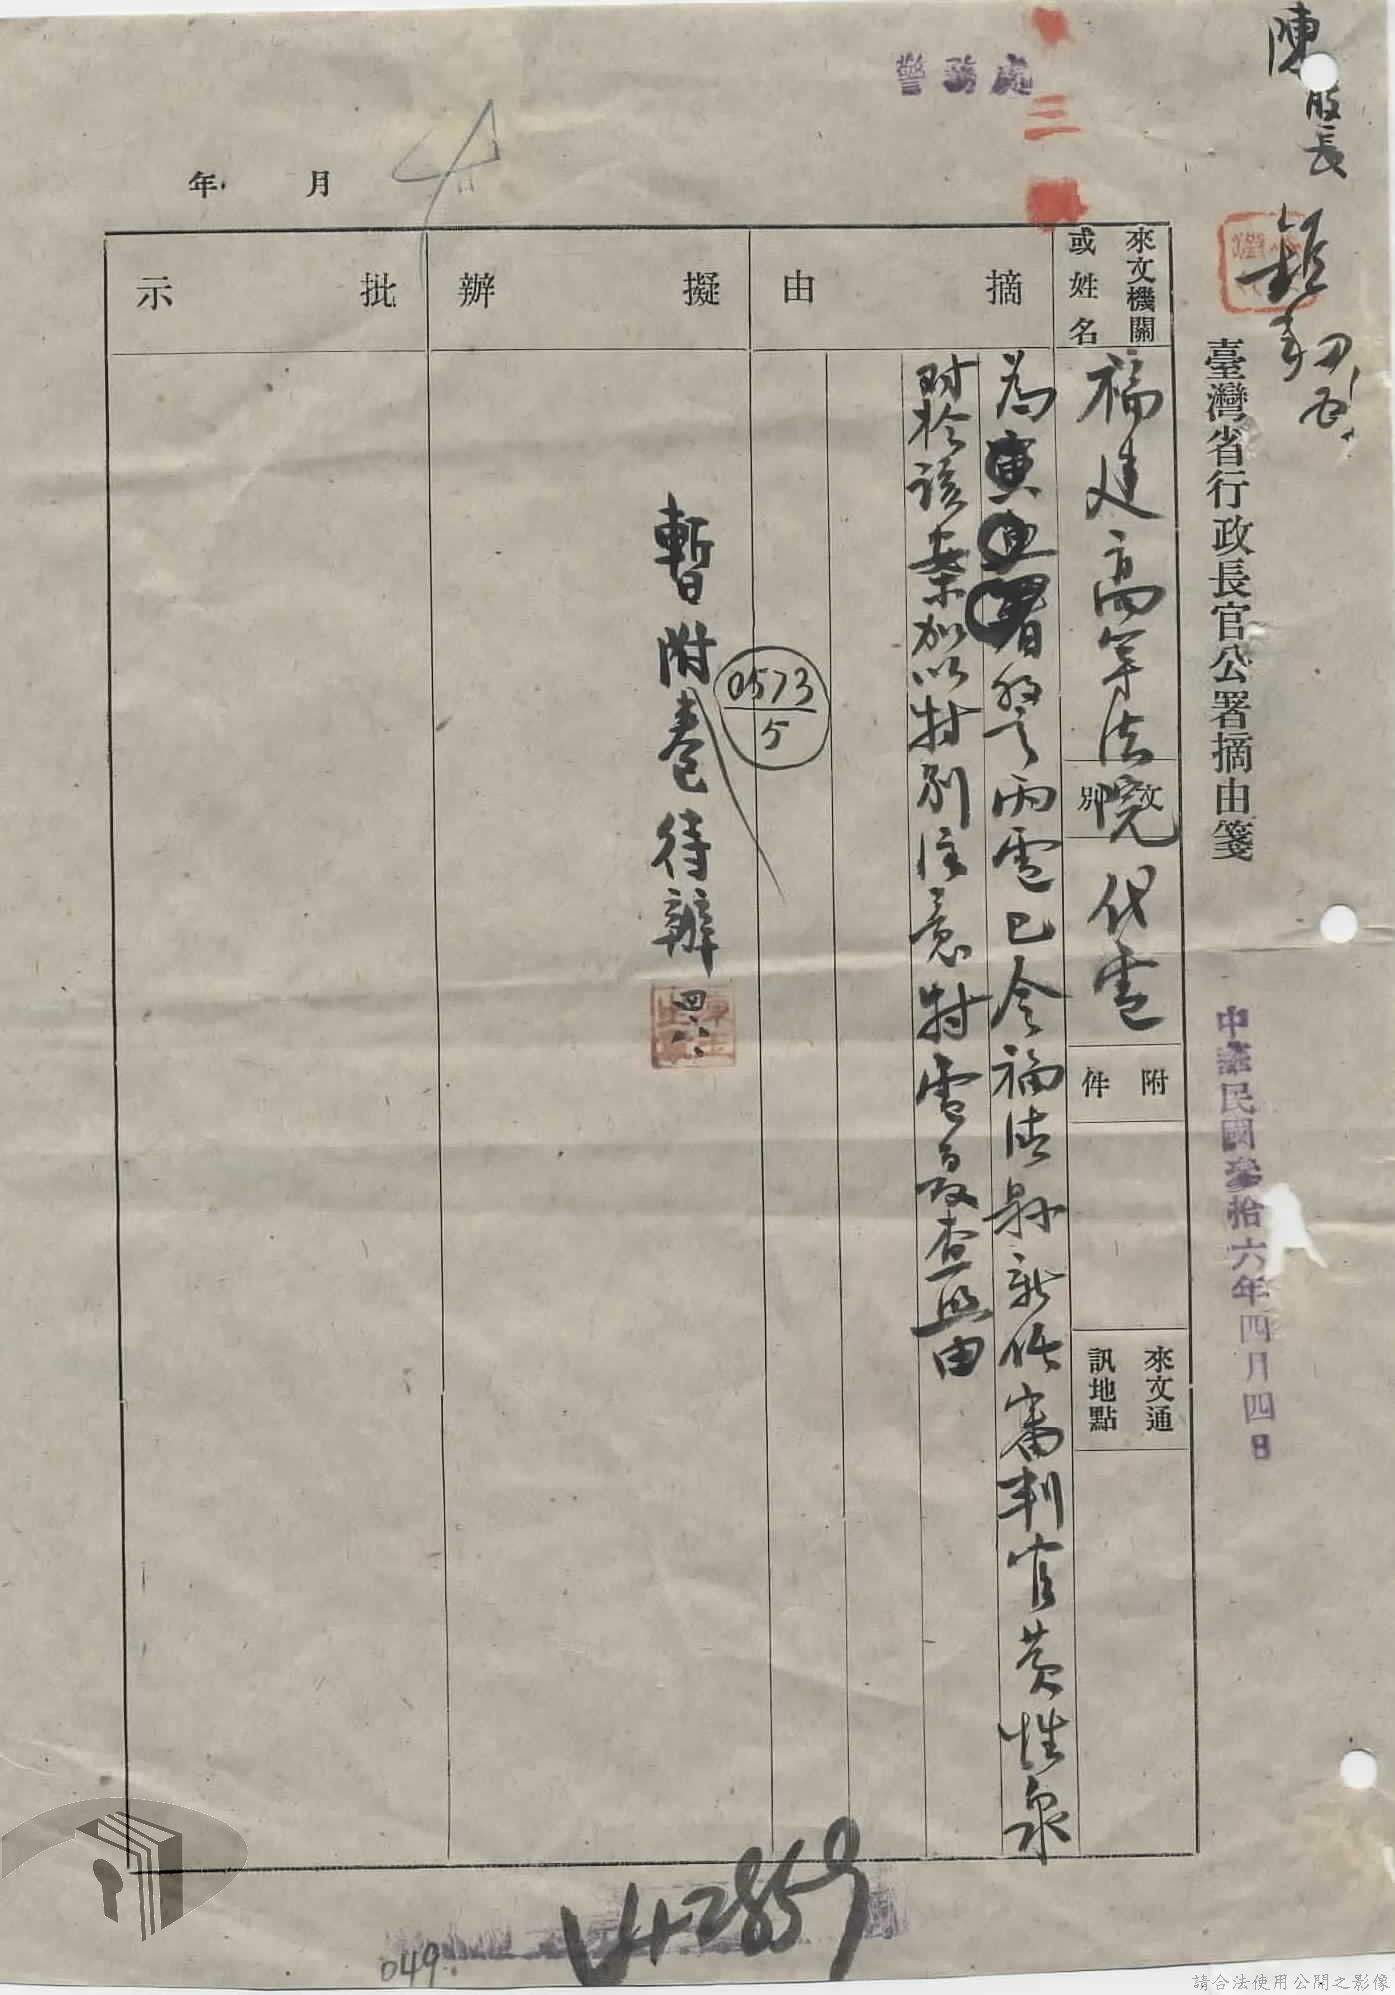 陳股長
臺灣省行政長官公署摘由箋
中華民國參拾六年四月四日
警務處
三
來文機關
或姓名
福建高等法院
文別
代電
附件
來文通
訊地點
摘由
為寅
兩電已令福清縣新任審判官黃性泉
對於該案加以特別注意特電復查照由
擬辦
0573
5
暫附卷待辦
四、八
批示
年 月
42859
049
請合法使用公開之影像